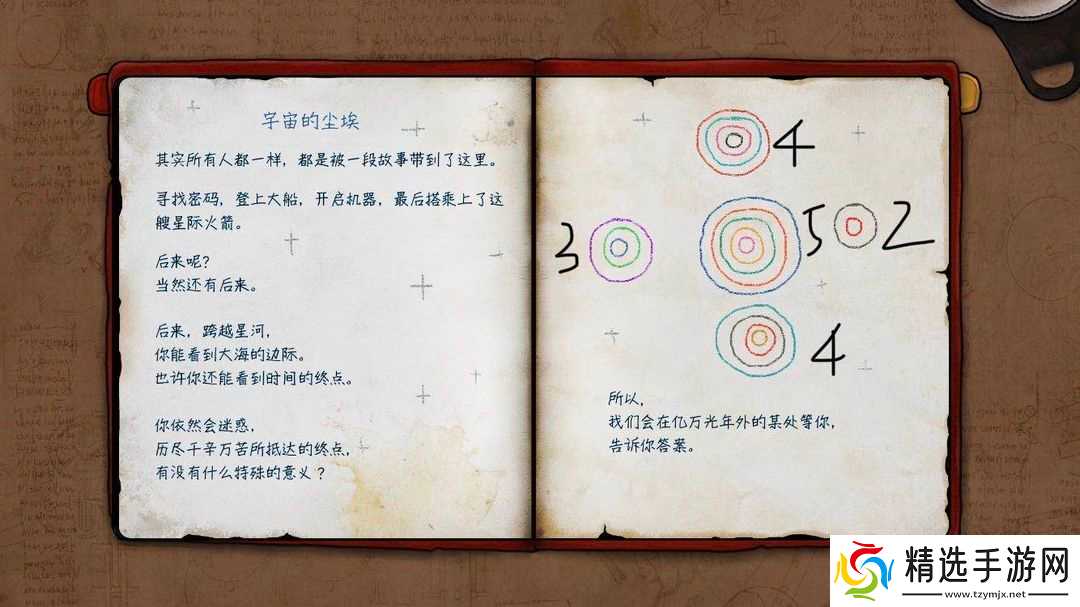 宇宙的尘埃
其实所有人都一样，都是被一段故事带到了这里。
寻找密码，登上大船，开启机器，最后搭乘上了这
艘星际火箭。
后来呢？
当然还有后来。
后来，跨越星河，
你能看到大海的边际。
也许你还能看到时间的终点。
你依然会迷惑，
历尽千辛万苦所抵达的终点，
有没有什么特殊的意义？
4
3
5
2
4
所以，
我们会在亿万光年外的某处等你，
告诉你答案。
精选手游网
www.tzymjx.net